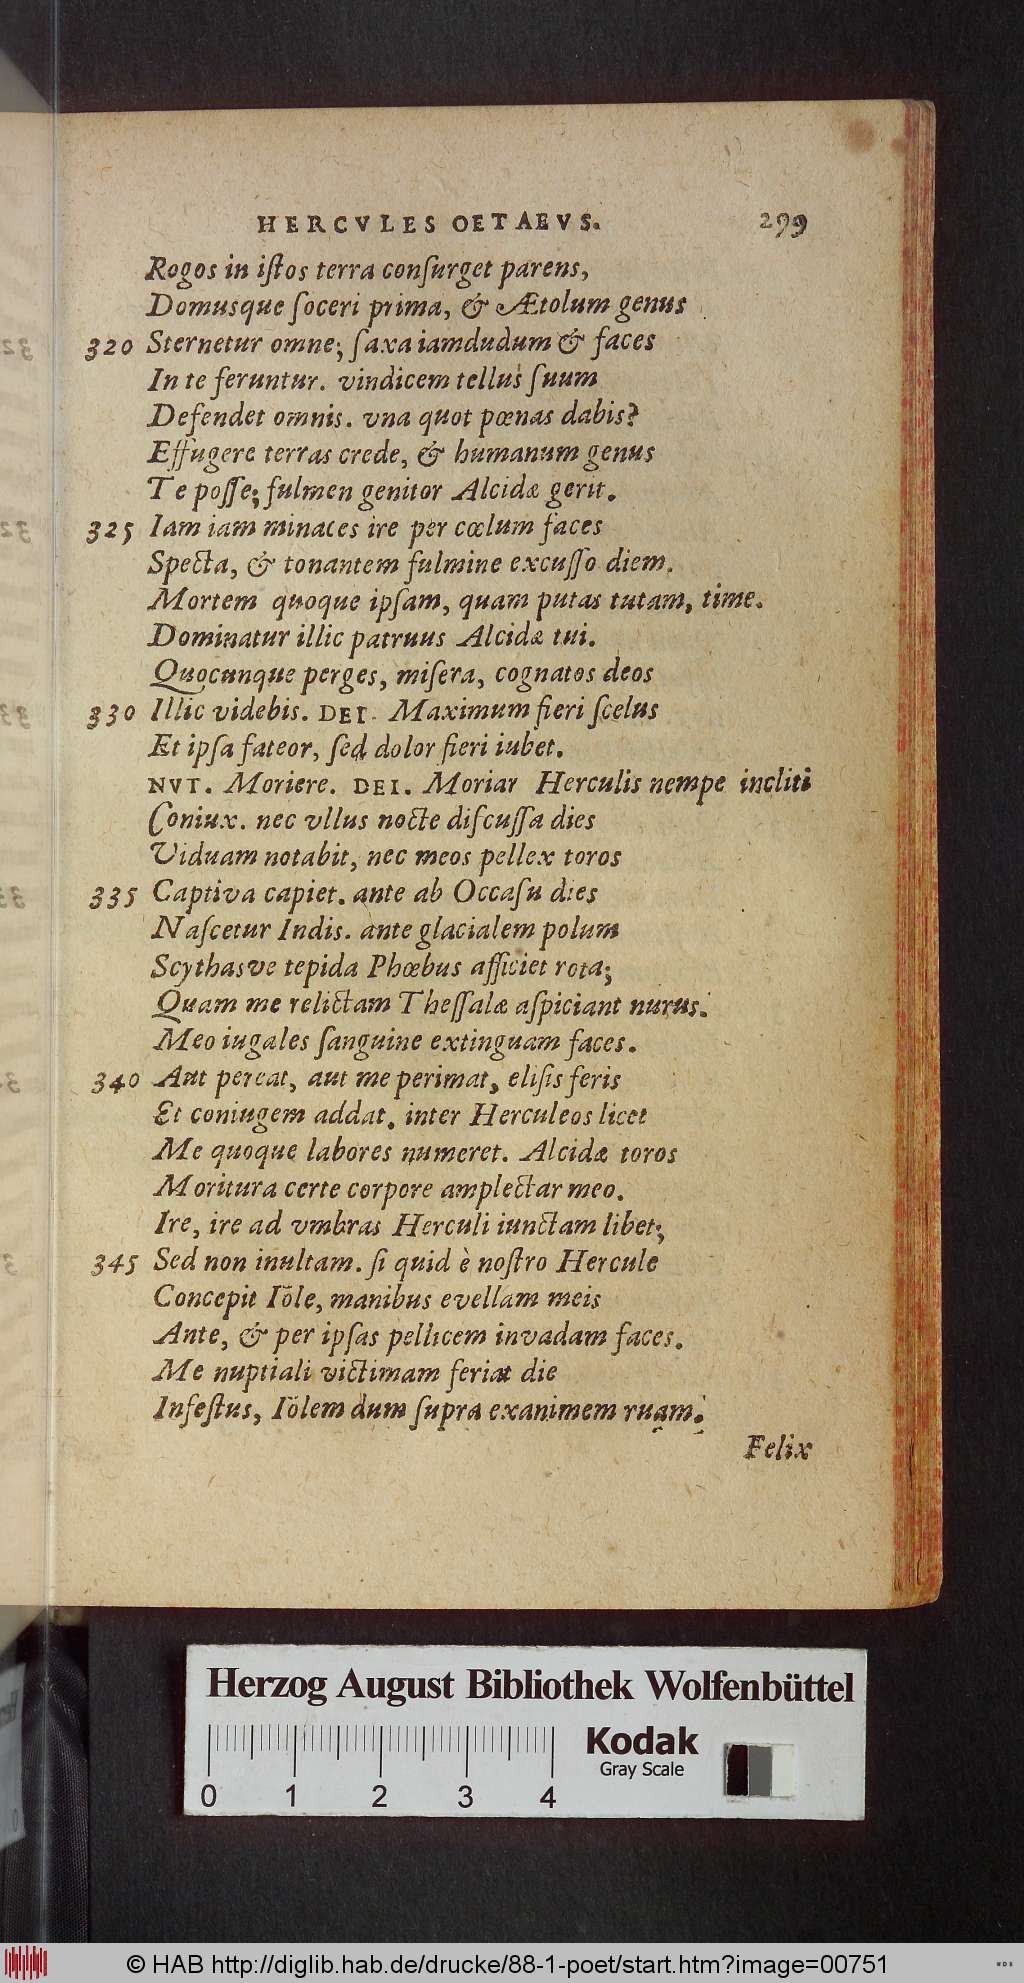 HERCVLES OETAEVS. 299
Rogos in iſtos terra conſurget parens,
Domusque ſoceri prima, & Ætolum genus
320 Sternetur omne; ſaxa iamdudum & faces
In te feruntur. vindicem tellus ſuum
Defendet omnis. vna quot pœnas dabis?
Effugere terras crede, & humanum genus
Te poſſe; fulmen genitor Alcidæ gerit.
325 Iam iam minaces ire per cœlum faces
Specta, & tonantem fulmine excuſſo diem.
Mortem quoque ipſam, quam putas tutam, time.
Dominatur illic patruus Alcidæ tui.
Quocunque perges, miſera, cognatos deos
330 Illic videbis. DEI. Maximum fieri ſcelus
Et ipſa fateor, ſed dolor fieri iubet.
NVT. Moriere. DEI. Moriar Herculis nempe incliti
Coniux. nec vllus nocte diſcuſſa dies
Viduam notabit, nec meos pellex toros
335 Captiva capiet. ante ab Occaſu dies
Naſcetur Indis. ante glacialem polum
Scythasve tepida Phœbus afficiet rota;
Quam me relictam Theſſalæ aſpiciant nurus.
Meo iugales ſanguine extinguam faces.
340 Aut pereat, aut me perimat, eliſis feris
Et coniugem addat. inter Herculeos licet
Me quoque labores numeret. Alcidæ toros
Moritura certe corpore amplectar meo.
Ire, ire ad vmbras Herculi iunctam libet;
345 Sed non inultam. ſi quid è noſtro Hercule
Concepit Iöle, manibus evellam meis
Ante, & per ipſas pellicem invadam faces.
Me nuptiali victimam feriat die
Infeſtus, Iölem dum ſupra exanimem ruam.
Felix
Herzog August Bibliothek Wolfenbüttel
Kodak
Gray Scale
0 1 2 3 4
© HAB http://diglib.hab.de/drucke/88-1-poet/start.htm?image=00751